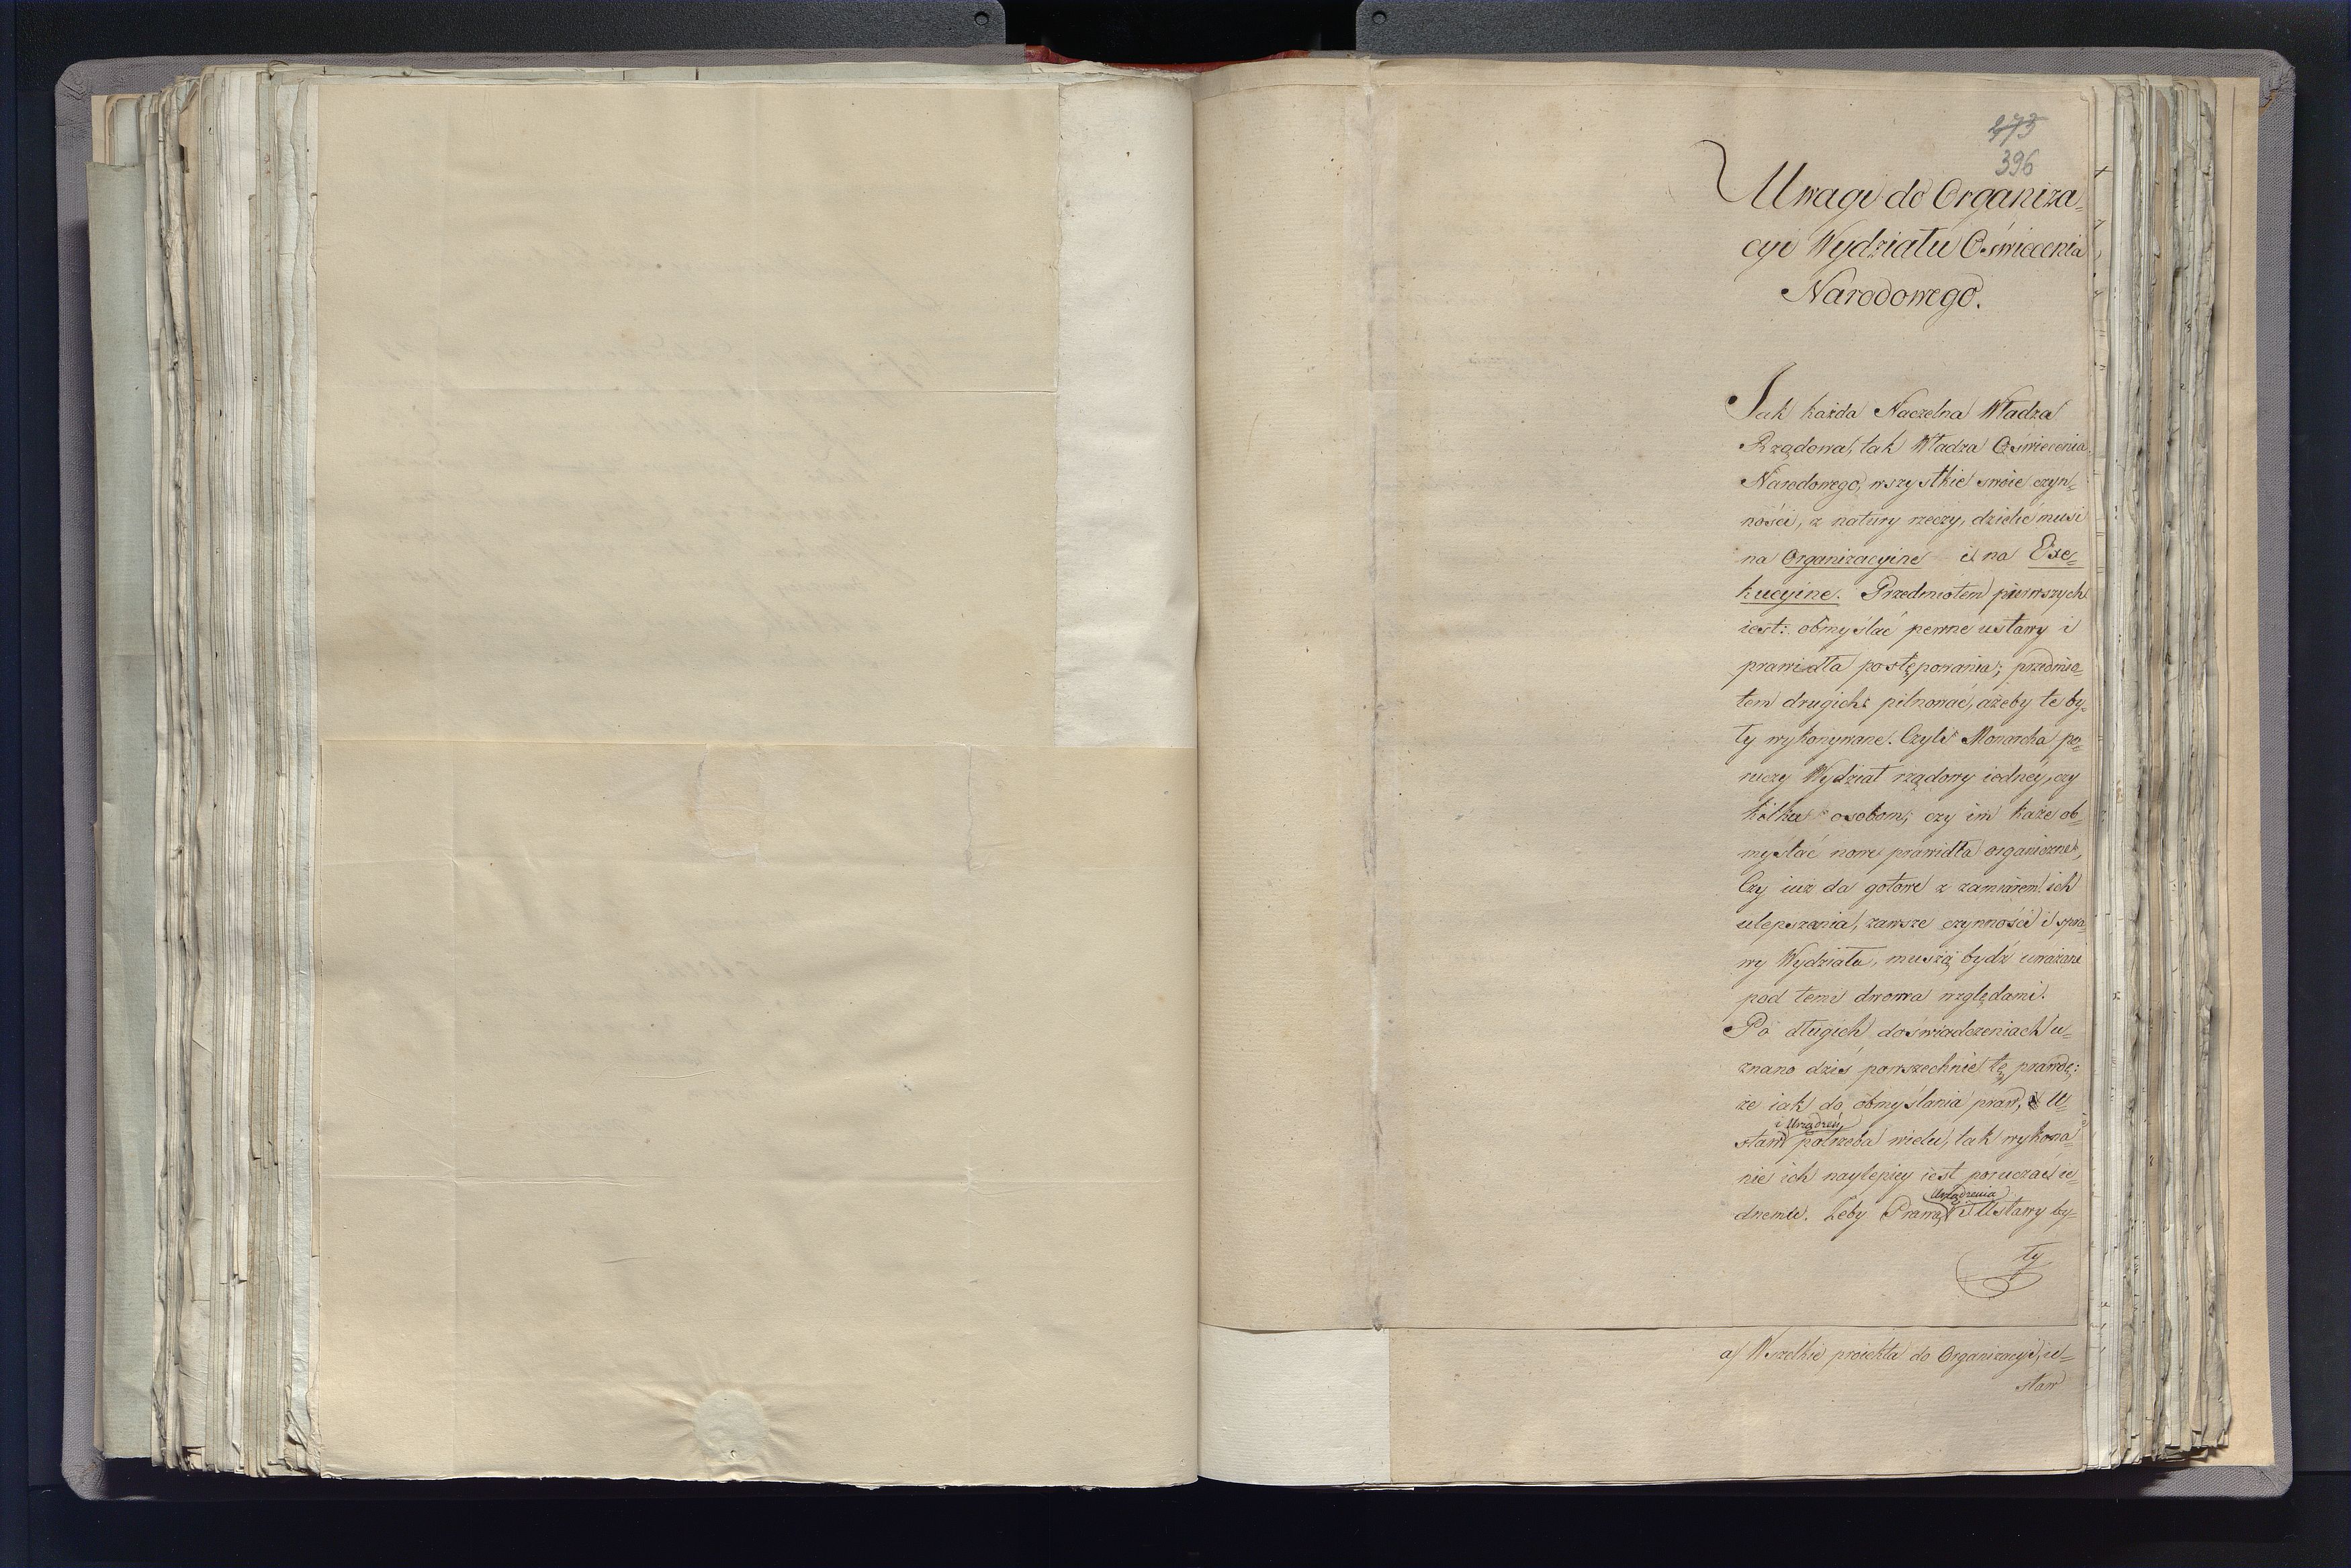 273
396
Uwagi do Organiza-
cyi Wydziału Oświecenia
Narodowego.
Jak każda Naczelna Władza
Rządowa, tak Władza Oświecenia
Narodowego, wszystkie swoie czyn-
ności, z natury rzeczy, dzielić musi
na Organizacyine i na Exe-
kucyine. Przedmiotem pierwszych
iest: obmyślać pewne ustawy i
prawidła postępowania; przedmio-
tem drugich: pilnować, ażeby te by-
ły wykonywane. Czyli Monarcha po-
ruczy Wydział rządowy iedney, czy
kilku osobom; czy im każe ob-
myślać nowe prawidła organiczne,
Czy iuż da gotowe z zamiarem ich
ulepszania, zawsze czynności i spra-
wy Wydziału, muszą bydź uważane
pod temi dwoma względami.
Po długich doświadczeniach u-
znano dziś powszechnie tę prawdę:
że iak do obmyślania praw, U-
i Urządzeń
staw potrzeba wielu, tak wykona-
nie ich naylepiey iest poruczać ie-
Urządzenia
dnemu. Żeby Prawa, i Ustawy by-
ły
a) Wszelkie proiekta do Organizacyi, u-
staw